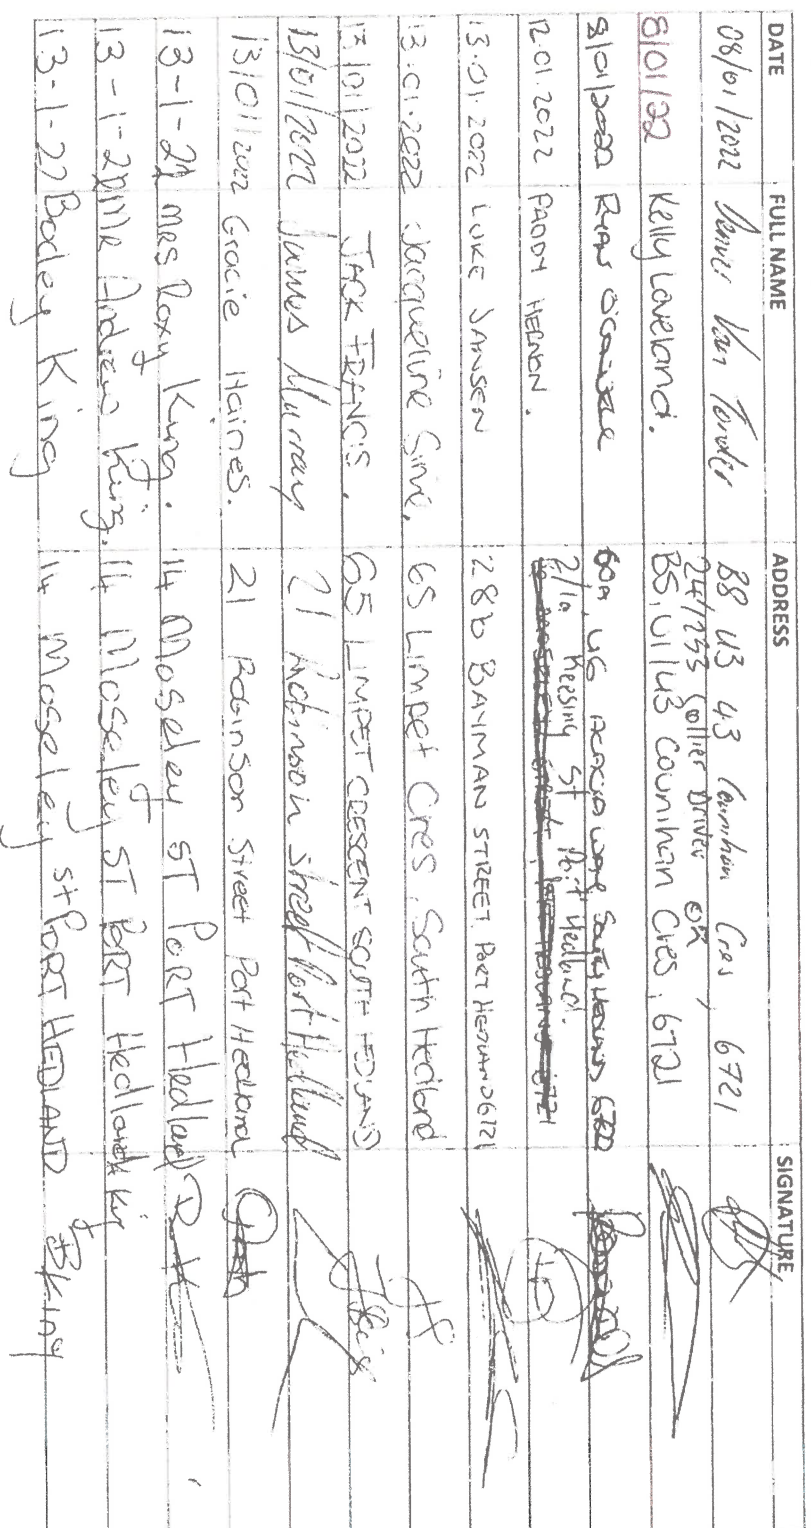 DATE FULL NAME ADDRESS SIGNATURE
08/01/2022 Denver Van Tonder B8, U3 43 Counihan Cres, 6721
8/01/22 Kelly Loveland. 24/233 Collier Driver OR
B5, U1/43 Counihan Cres, 6721
8/01/2022 RYAN 60A, U6 ACACIA WAY SOUTH HEDLAND 6722
12.01.2022 PADDY HERNON. 2/10 Keesing St, Port Hedland.
13.01.2022 LUKE JANSEN 28b BAYMAN STREET PORT HEDLAND 6721
13.01.2022 Jacqueline 65 Limpet Cres, South Hedland
13/01/2022 JACK FRANCIS. 65 LIMPET CRESCENT SOUTH HEDLAND
13/01/2022 James Murray 21 Robinson Street Port Hedland
13/01/2022 Gracie Haines. 21 Robinson Street Port Hedland
13-1-22 MRS Roxy King. 14 Moseley ST PORT Hedland
13-1-22 MR Andrew King. 14 Moseley ST PORT Hedland
13-1-22 Bodey King 14 Moseley st PORT HEDLAND BKing